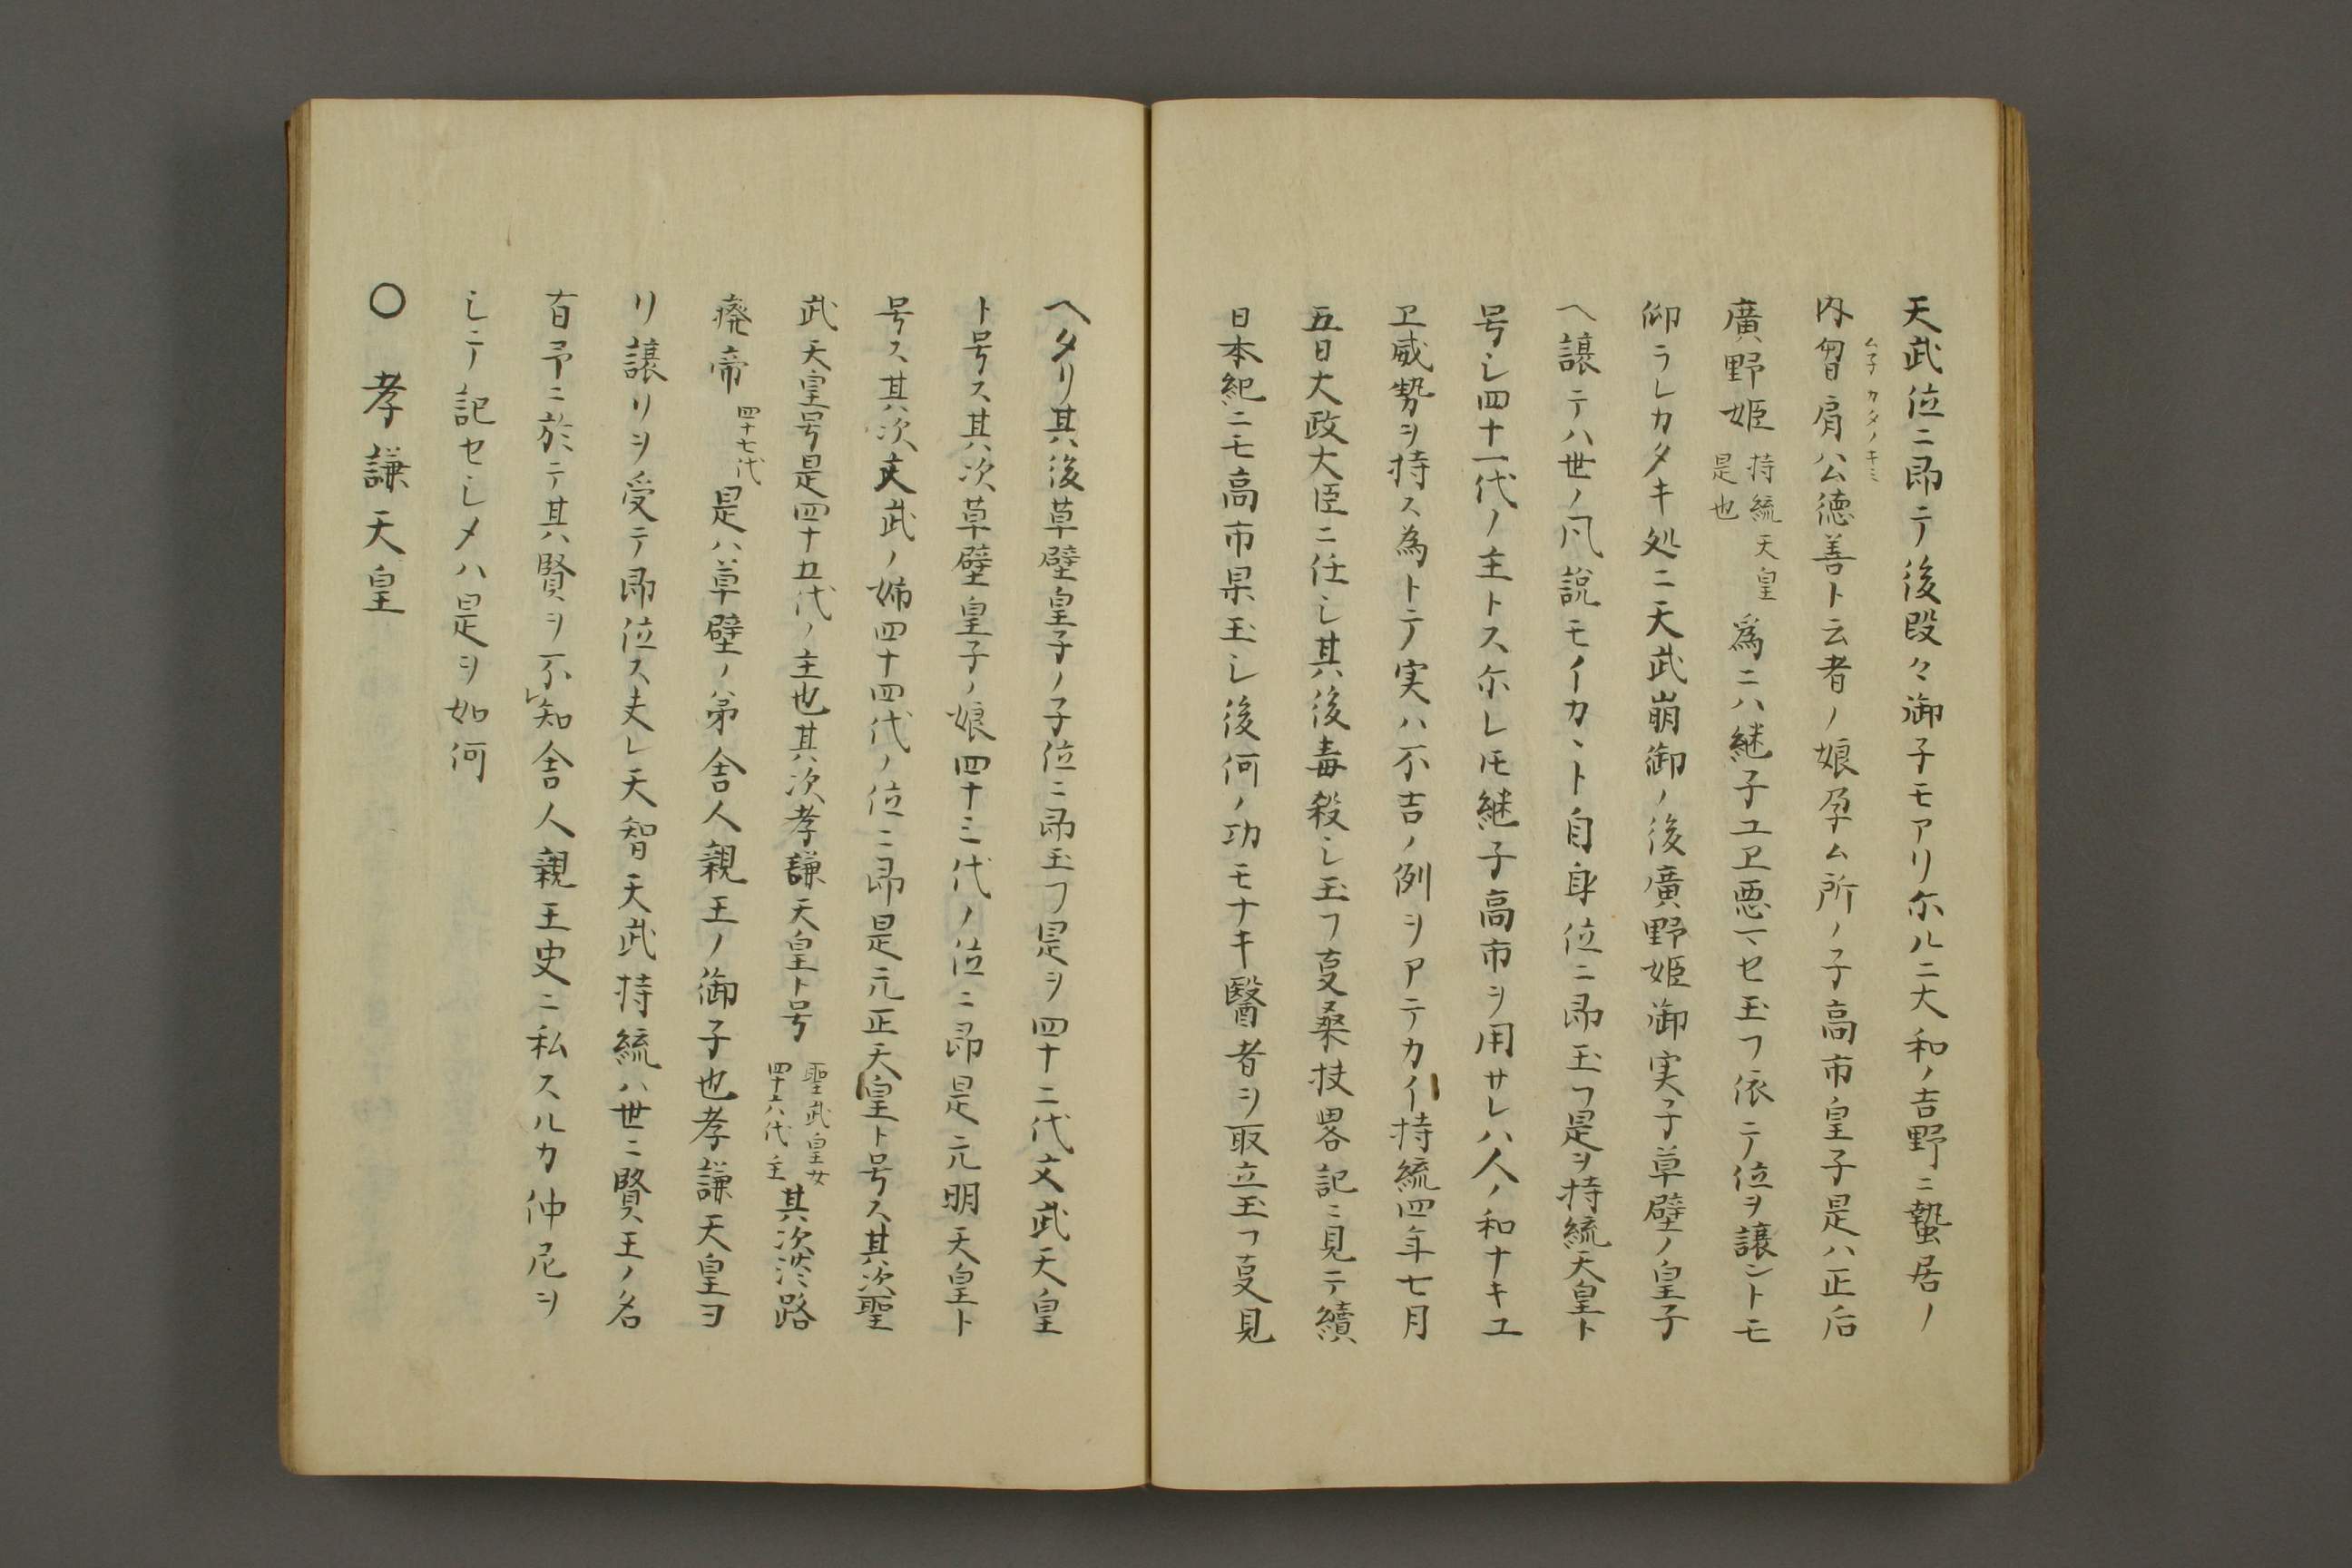 天武位ニ即テ後段々御子モアリ尓ルニ大和ノ吉野ニ蟄居ノ
内聟肩ハ公徳善ト云者ノ娘孕ム所ノ子高市皇子是ハ正后
ムコ カタノキミ
廣野姫 持統天皇 是也 為ニハ継子ユヱ悪マセ玉フ依テ位ヲ譲ントモ
仰ラレカタキ処ニ天武崩御ノ後廣野姫御実子草壁ノ皇子
ヘ譲テハ世ノ凡説モイカヽト自身位ニ即玉フ是ヲ持統天皇ト
号シ四十一代ノ主トス尓レ𪜈継子高市ヲ用サレハ人ノ和ナキユ
ヱ威勢ヲ持ス為トテ実ハ不吉ノ例ヲアテカイ持統四年七月
五日大政大臣ニ任シ其後毒殺シ玉フ叓桑扶畧記ニ見テ續
日本紀ニモ高市果玉シ後何ノ功モナキ醫者ヲ取立玉フ叓見
ヘタリ其後草壁皇子ノ子位ニ即玉フ是ヲ四十二代文武天皇
ト号ス其次草壁皇子ノ娘四十三代ノ位ニ即是元明天皇ト
号ス其次文武ノ姉四十四代ノ位ニ即是元正天皇ト号ス其次聖
武天皇号是四十五代ノ主也其次孝謙天皇ト号 聖武皇女 四十六代主 其次淡路
癈帝 四十七代 是ハ草壁ノ弟舎人親王ノ御子也孝謙天皇ヨ
リ譲リヲ受テ即位ス夫レ天智天武持統ハ世ニ賢王ノ名
有予ニ於テ其賢ヲ不レ知舎人親王史ニ私スルカ仲尼ヲ
シテ記セシメハ是ヲ如何
〇 孝謙天皇